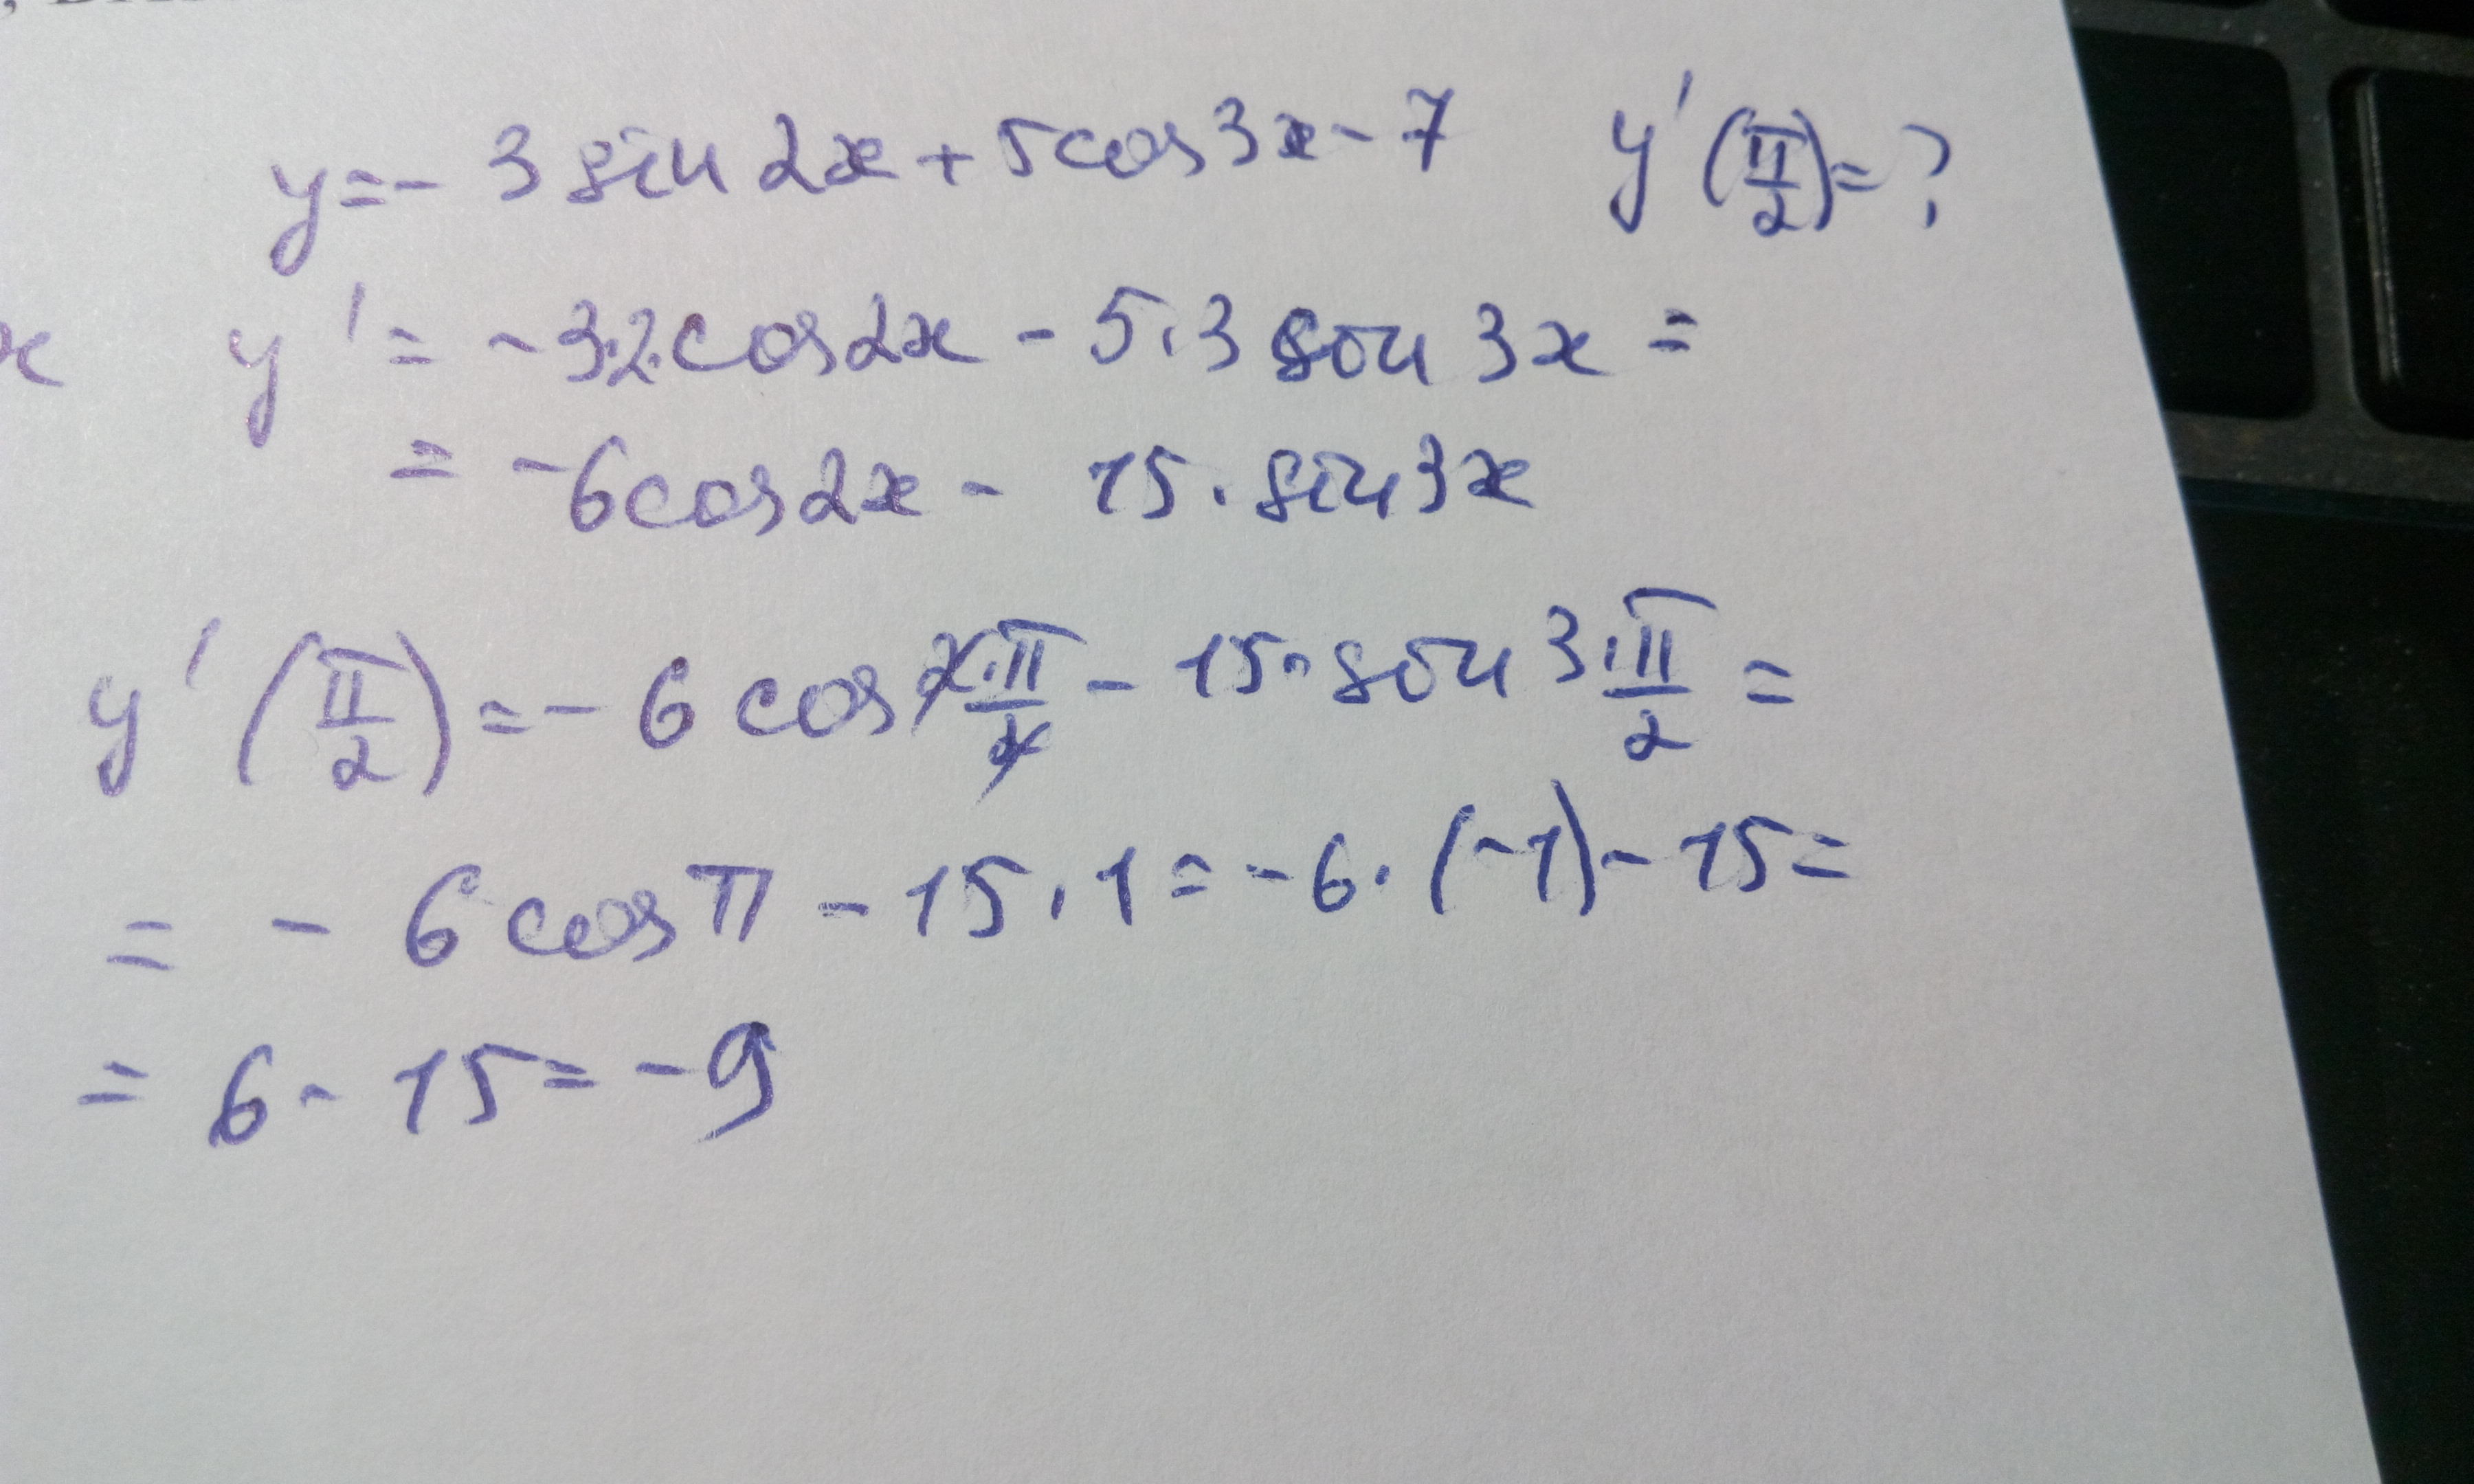 y=-3 sin 2x+5cos3x-7 y'(π/2)=?
x y'=-3·2·cos2x-5·3 sin 3x=
=-6cos2x-15·sin3x
y'(π/2)=-6cos 2·π/2-15·sin 3·π/2=
=-6cosπ-15·1=-6·(-1)-15=
=6-15=-9